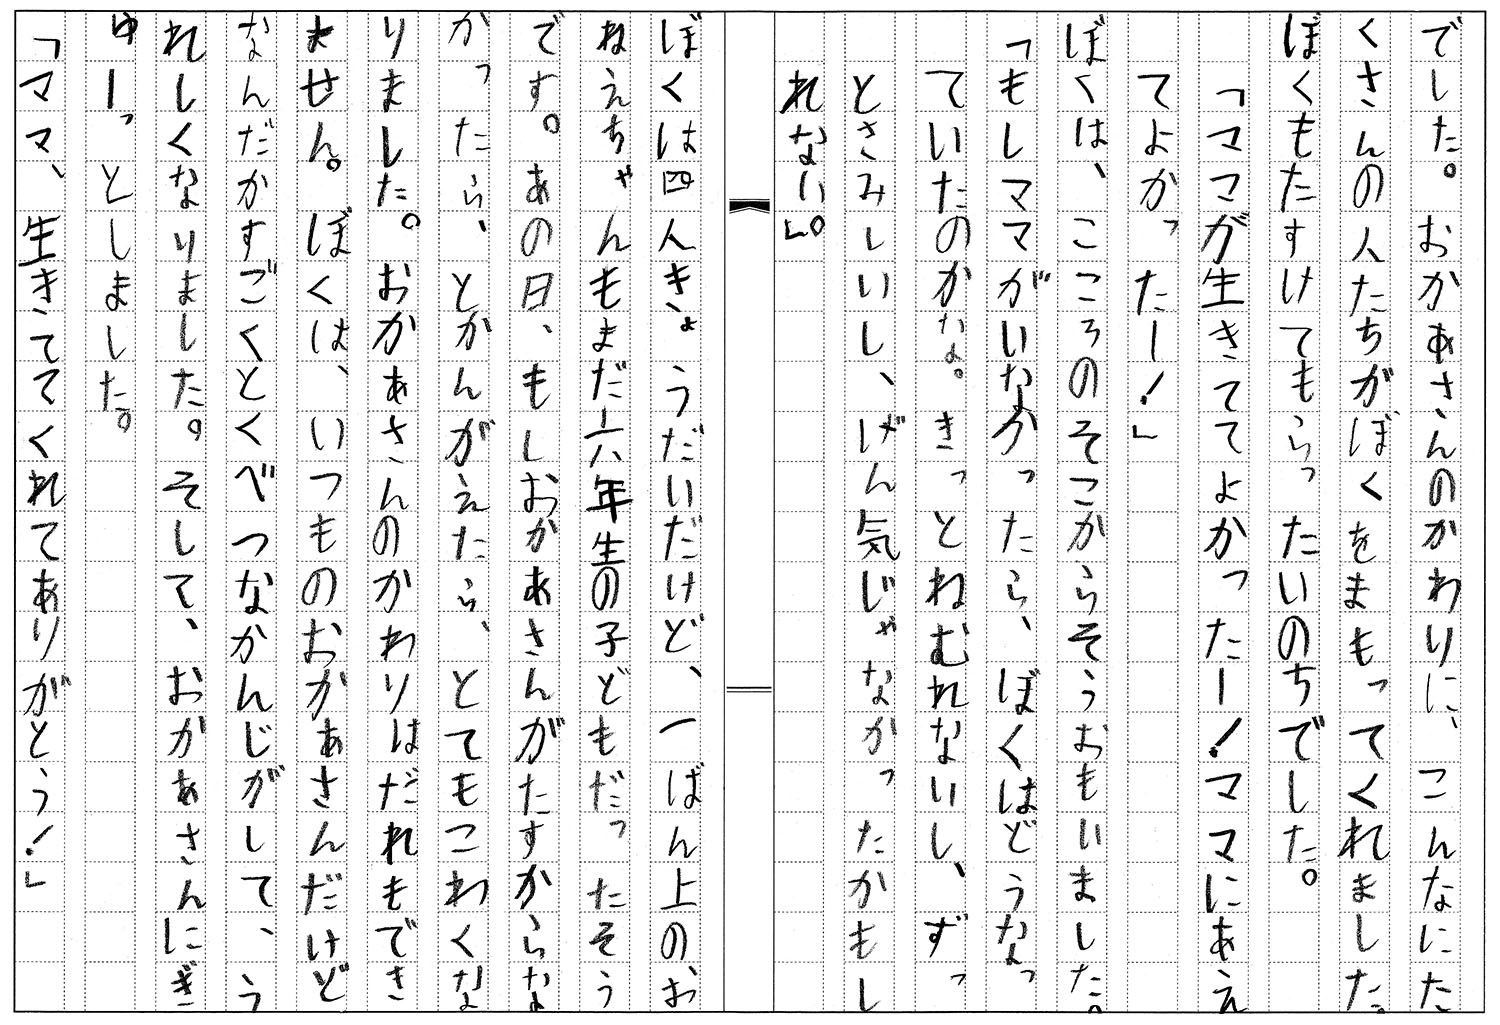 でした。おかあさんのかわりに、こんなにた
くさんの人たちがぼくをまもってくれました。
ぼくもたすけてもらったいのちでした。
「ママが生きててよかったー！ママにあえ
てよかったー！」
ぼくは、こころのそこからそうおもいました。
「もしママがいなかったら、ぼくはどうなっ
ていたのかな。きっとねむれないし、ずっ
とさみしいし、げん気じゃなかったかもし
れない」。
ぼくは四人きょうだいだけど、一ばん上のお
ねえちゃんもまだ六年生の子どもだったそう
です。あの日、もしおかあさんがたすからな
かったら、とかんがえたら、とてもこわくな
りました。おかあさんのかわりはだれもでき
ません。ぼくは、いつものおかあさんだけど
なんだかすごくとくべつなかんじがして、う
れしくなりました。そして、おかあさんにぎ
ゅーっとしました。
「ママ、生きててくれてありがとう！」